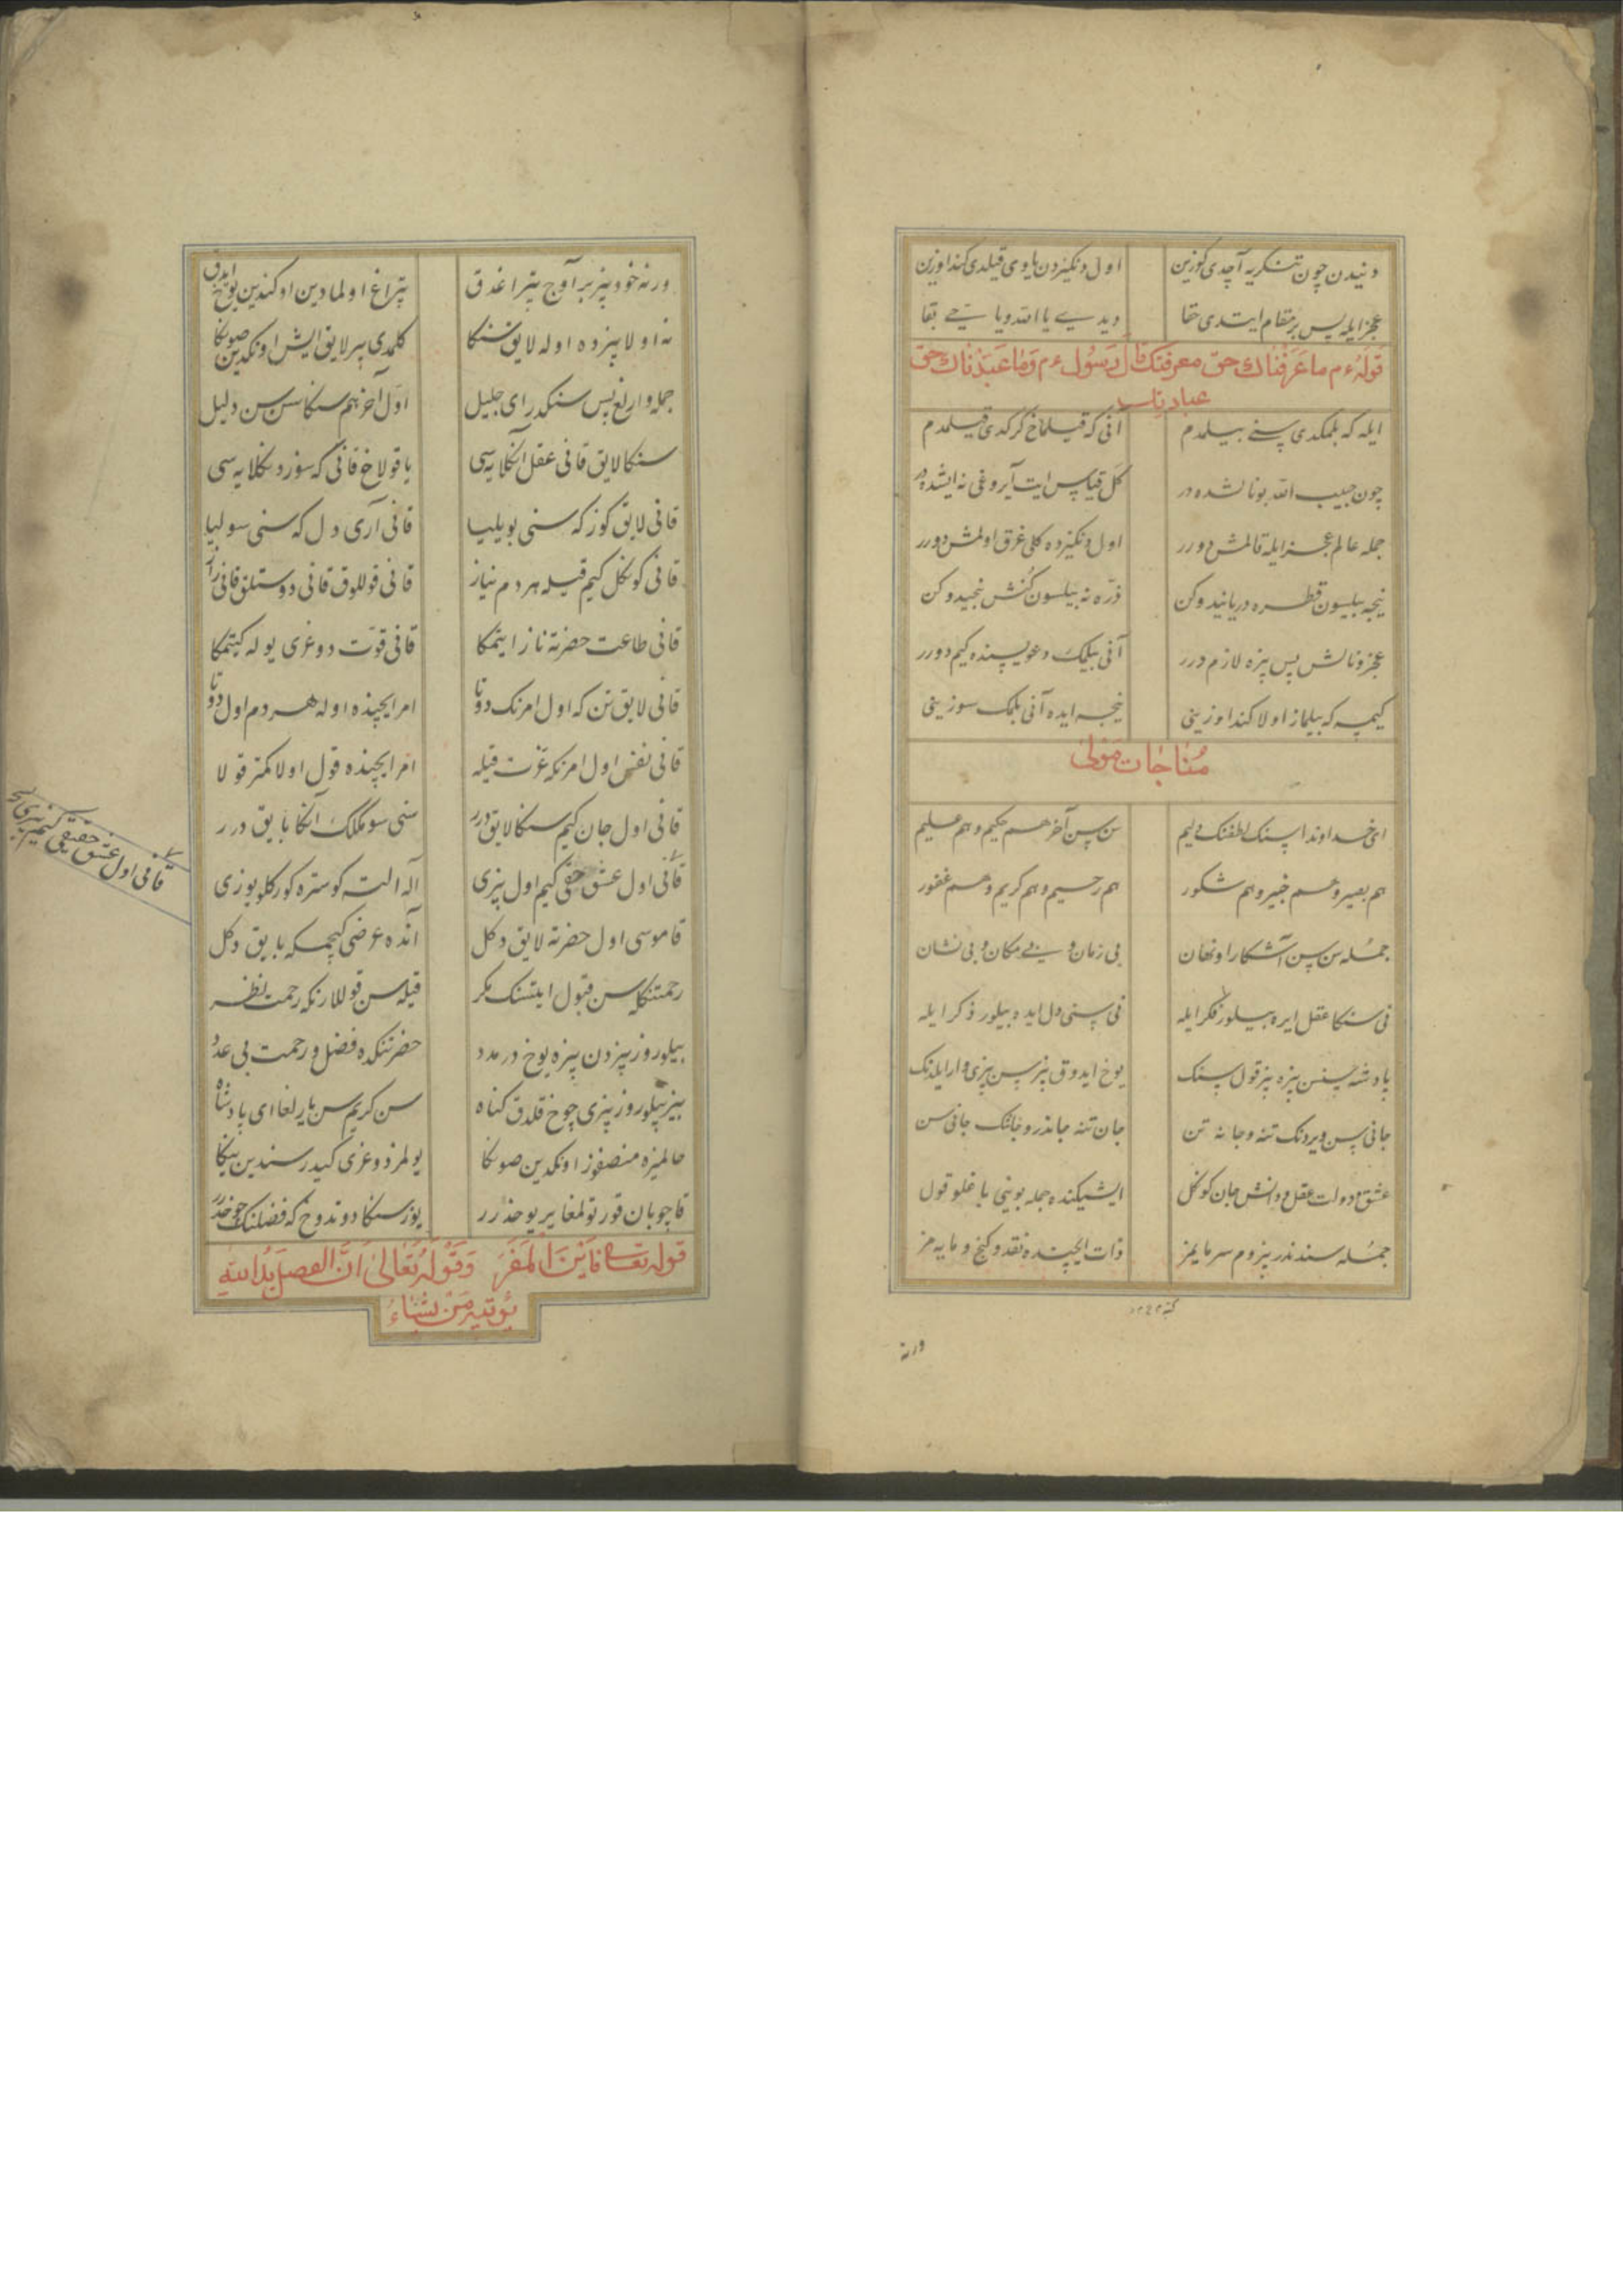 دنیدن چون تنکریه آچدی کوزین اول دنکیزدن یاوی قیلدی کندا وزین
عجز ایله پس بر مقام ایتدی حقا دیدی یا الله ویا حی بقا
قوله عم ما عَرَفْناك حقّ معرفتك قال رسول عم وما عَبَدْناك حقّ
عبادتك
ایله که بلمکدی سنی بیلمدم آنی که قیلماخ کرکدی قیلمدم
چون حبیب الله بونا لشده در کل قیاس ایت آیروغی نه ایشده در
جمله عالم عجز ایله قالمش دورر اول دنکیزده کلی غرق اولمش دورر
نیجه بیلسون قطره دریا نیدوکن ذرّه نه بیلسون کُنش نجیدوکن
عجز ونالش پس بزه لازم درر آنی بیلمک دعویسنده کیم دورر
کیمسه که بیلماز اولا کندا وزینی نیجه ایده آنی بلمک سوزینی
مُناجات مَولی
ای خداوندا سنک لطفنک دلیم سن سن آخر هم حکیم وهم علیم
هم بصیر وهم خبیر وهم شکور هم رحیم وهم کریم وهم غفور
جمله سن سن آشکارا ونهان بی زمان وبی مکان وبی نشان
نی سنکا عقل ایره بیلور فکر ایله نی سنی دل ایده بیلور ذکر ایله
پادشه سنسن بزه بز قول سنک یوخ ایدوق بز سن بزی وار ایلدنک
جانی سن ویردنک تنه وجانه تن جان تنه جاندر وجانک جانی سن
عشق ودولت عقل ودانش جان کونکل ایشیکنده جمله بوینی باغلو قول
جمله سندندر بزوم سرمایمز ذات ایچنده نقد وکنج ومایه مز
ورنه
ورنه خود بز بر آوج تپراغدق تپراغ اولمادین اوکندین یوخ ایدق
نه اولا بزده اوله لایق سنکا کلمدی بیر لایق ایش اونکدین صونکا
جمله وارلغ پس سنکدر ای جلیل اوّل آخر هم سنکا سن سن دلیل
سنکا لایق قانی عقل آنکلایه سی یا قولاخ قانی که سوز دنکلایه سی
قانی لایق کوز که سنی بویلیا قانی آری دل که سنی سولیا
قانی کونکل کیم قیله هر دم نیاز قانی قوللوق قانی دوستلق قانی راز
قانی طاعت حضرته ناز ایتمکا قانی قوّت دوغری یوله کیتمکا
قانی لایق تن که اول امرنک دوتا امر ایچنده اوله هر دم اول دوتا
قانی نفس اول امرنکه عزت قیله امر ایچنده قول اولا کمتر قولا
قانی اول جان کیم سنکا لایق درر سنی سومکلک آنکا بایق درر
قانی اول عشق حقی کیم اول بزی اله الته کوستره کورکلو یوزی
قاموسی اول حضرته لایق دکل آنده عرضی کیچمکه بایق دکل
رحمتنکله سن قبول ایتسنک مکر قیله سن قوللارنکه رحمت نظر
بیلوروز بزدن بزه یوخ در مدد حضرتنکده فضل ورحمت بی عدد
بیز بیلوروز بزی چوخ قلدق کناه سن کریم سن یارلغا ای پادشاه
حالمیزه منصفوز اونکدین صونکا یولمز دوغری کیدر سندین ینکا
قاچوبان قورتولمغا یر یوخدرر یوز سنکا دوتدوخ که فضلنک چوخدرر
قوله تعالی فَاَیْنَ المَفَرّ وَقَوْلُهُ تَعَالیٰ اَنَّ الفضلَ بیَدِ اللهِ
یُؤتیهِ مَنْ یَشَاءُ
قانی اول عشق حقیقی کیم بزی